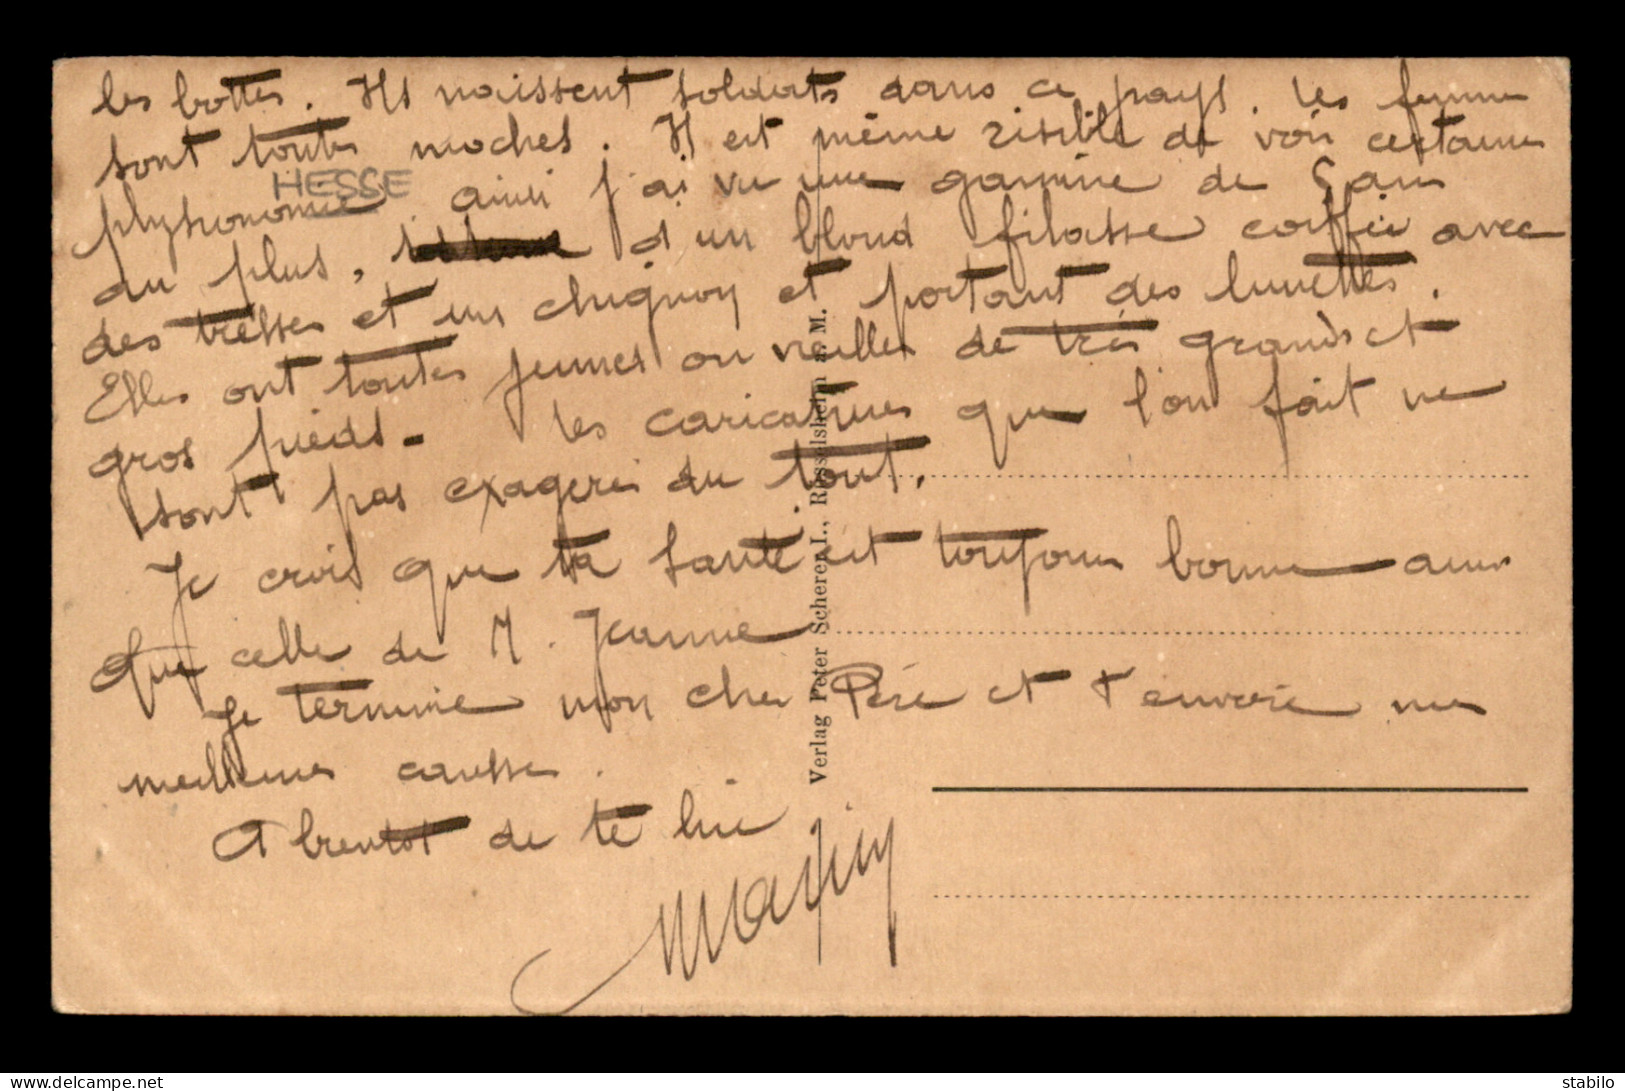 les bottes. Ils naissent soldats dans ce pays. Les femmes
sont toutes moches. Il est même risible de voir certaines
HESSE
physionomie ainsi j'ai vu une gamine de 5 ans
au plus, d'un blond filasse coiffée avec
des tresses et un chignon et portant des lunettes.
Elles ont toutes jeunes ou vieilles de très grands et
gros pieds. Les caricatures que l'on fait ne
sont pas exagérés du tout.
Je crois que ta santé est toujours bonne ainsi
que celle de M. Jeanne
Je termine mon cher Père et t'envoie mes
meilleures caresses.
A bientot de te lire
Verlag Peter Scherer I., Rüsselsheim a. M.
delcampe.net
stabilo